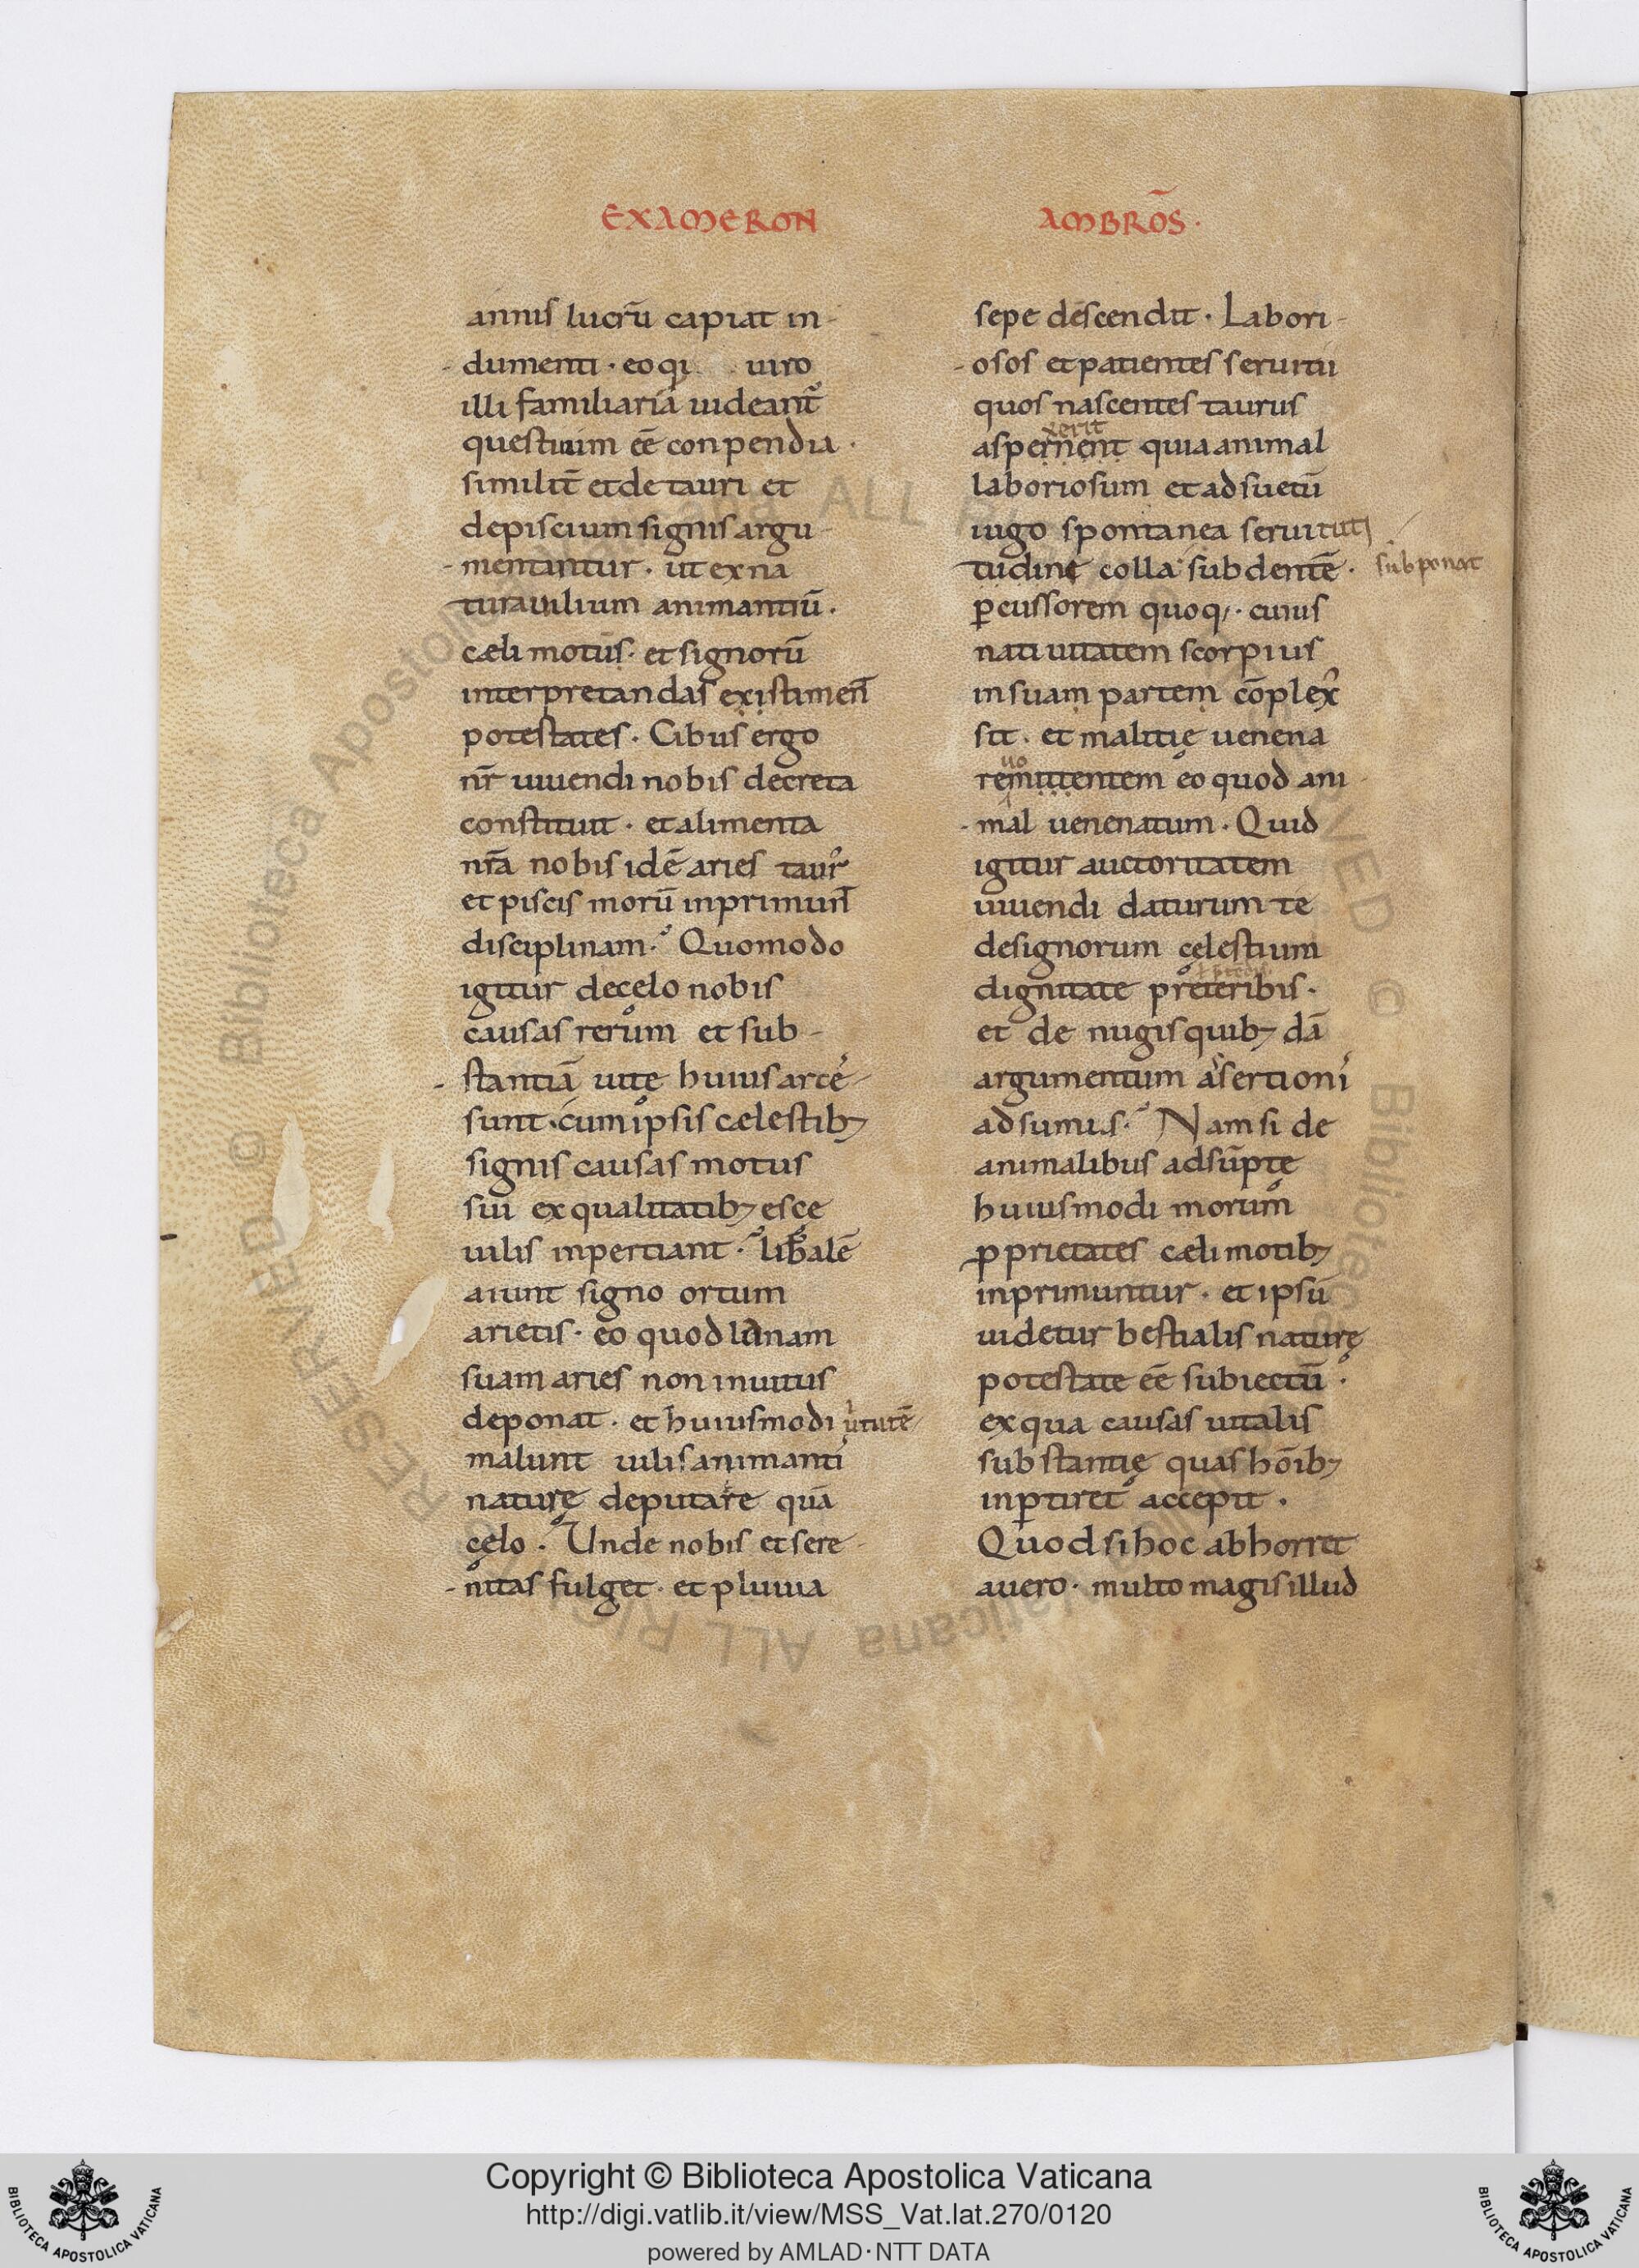 EXAMERON
annis lucrū capiat in-
-dumenti · eo qi uiro
illi familiaria uideant̃
questuum eē conpendia ·
similit̄ et de tauri et
de piscium signis argu-
-mentantur · ut ex na
tura uilium animantiū ·
cæli motus · et signorū
interpretandas existimen̄t
potestates · Cibus ergo
nr̄ uiuendi nobis decreta
constituit · et alimenta
nr̄a nobis idē aries taur᾿
et piscis morū inprimun̄t
disciplinam · Quomodo
igitur de cęlo nobis
causas rerum et sub-
-stantiā uitę huius arcé-
sunt · cum ipsis cælestib;
signis causas motus
sui ex qualitatib; escę
uilis inpertiant · lib̄alē
aiunt signo ortum
arietis · eo quod lanam
suam aries non inuitus
deponat · et huiusmodi ũtutē
malunt uilis animanti
naturę deputare quā
cęlo · Unde nobis et sere-
-nitas fulget · et pluuia
AMBROS̄ ·
sepe descendit · Labori-
-osos et patientes seruitii
quos nascentes taurus
xerit
aspernent quia animal
laboriosum et adsuetū
iugo spontanea seruituti
tudine colla subdentē · subponat
ꝑcussorem quoq; · cuius
natiuitatem scorpius
in suam partem cōplex᾿
sit · et malitię uenena
uo
remittentem eo quod ani
-mal uenenatum · Quid
igitur auctoritatem
uiuendi daturum te
de signorum cęlestium
dignitate pręteribis ·
et de nugis quib; dā
argumentum asertioni
adsumis · Nam si de
animalibus adsūptę
huiusmodi morum
ꝓprietates cæli motib;
inprimuntur · et ipsū
uidetur bestialis naturę
potestate eē subiectū ·
ex qua causas uitalis
substantię quas hōib;
inꝑtiret accepit ·
Quod si hoc abhorret
a uero · multo magis illud
Copyright © Biblioteca Apostolica Vaticana
http://digi.vatlib.it/view/MSS_Vat.lat.270/0120
powered by AMLAD·NTT DATA
BIBLIOTECA APOSTOLICA VATICANA
BIBLIOTECA APOSTOLICA VATICANA